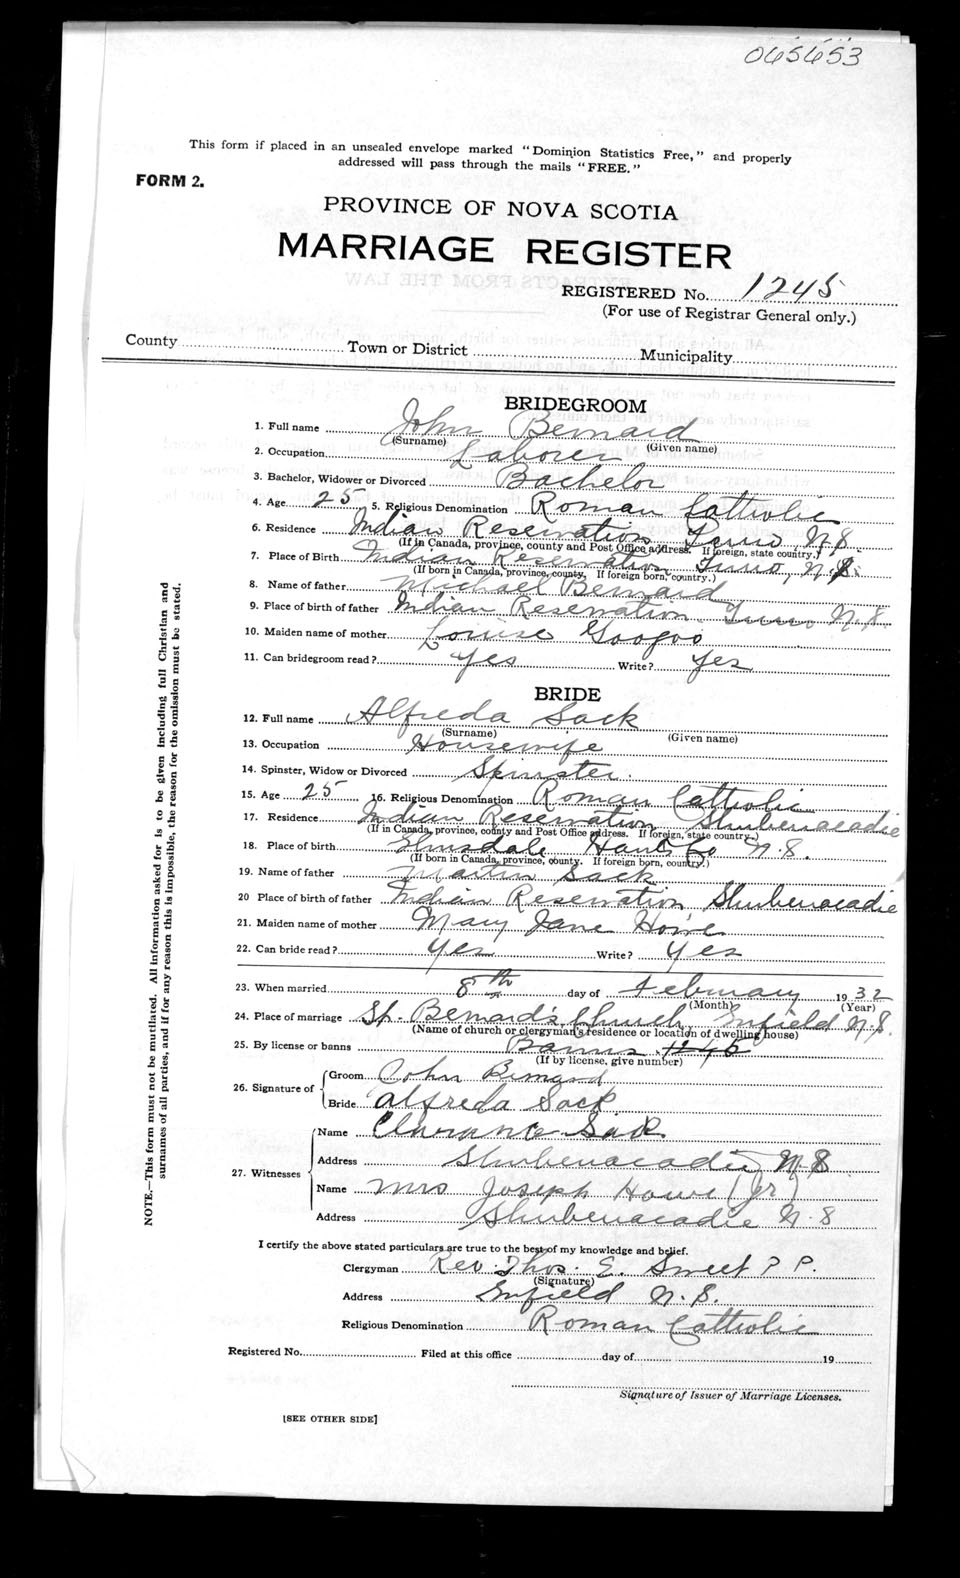 065653
This form if placed in an unsealed envelope marked "Dominion Statistics Free," and properly
addressed will pass through the mails "FREE."
FORM 2.
PROVINCE OF NOVA SCOTIA
MARRIAGE REGISTER
REGISTERED No. 1245
(For use of Registrar General only.)
County Town or District Municipality
BRIDEGROOM
1. Full name John Bernard
(Surname) (Given name)
2. Occupation Laborer
3. Bachelor, Widower or Divorced Bachelor
4. Age 25 5. Religious Denomination Roman Catholic
6. Residence Indian Reservation Truro, N.S.
(If in Canada, province, county and Post Office address. If foreign, state country.)
7. Place of Birth Indian Reservation Truro, N.S.
(If born in Canada, province, county, If foreign born, country.)
8. Name of father Michael Bernard
9. Place of birth of father Indian Reservation Truro N.S
10. Maiden name of mother Louise Googoo
11. Can bridegroom read? Yes Write? Yes
BRIDE
12. Full name Alfreda Sack
(Surname) (Given name)
13. Occupation Housewife
14. Spinster, Widow or Divorced Spinster.
15. Age 25 16. Religious Denomination Roman Catholic
17. Residence Indian Reservation Shubenacadie
(If in Canada, province, county and Post Office address. If foreign, state country.)
18. Place of birth Elmsdale Hants Co N.S.
(If born in Canada, province, county. If foreign born, country.)
19. Name of father Martin Sack
20 Place of birth of father Indian Reservation Shubenacadie
21. Maiden name of mother Mary Jane Howe
22. Can bride read? Yes Write? Yes
23. When married 8th day of February 1932
(Month) (Year)
24. Place of marriage St. Bernard's Church Enfield N.S.
(Name of church or clergyman's residence or location of dwelling house)
25. By license or banns Banns 1245
(If by license, give number)
26. Signature of Groom John Bernard
Bride Alfreda Sack
27. Witnesses Name Clarance Sack
Address Shubenacadie N.S
Name Mrs Joseph Howe (Jr)
Address Shubenacadie N.S
I certify the above stated particulars are true to the best of my knowledge and belief.
Clergyman Rev. Thos. E. Sweet P.P.
(Signature)
Address Enfield N.S.
Religious Denomination Roman Catholic
Registered No. Filed at this office day of 19
Signature of Issuer of Marriage Licenses.
[SEE OTHER SIDE]
NOTE.—This form must not be mutilated. All information asked for is to be given including full Christian and
surnames of all parties, and if for any reason this is impossible, the reason for the omission must be stated.